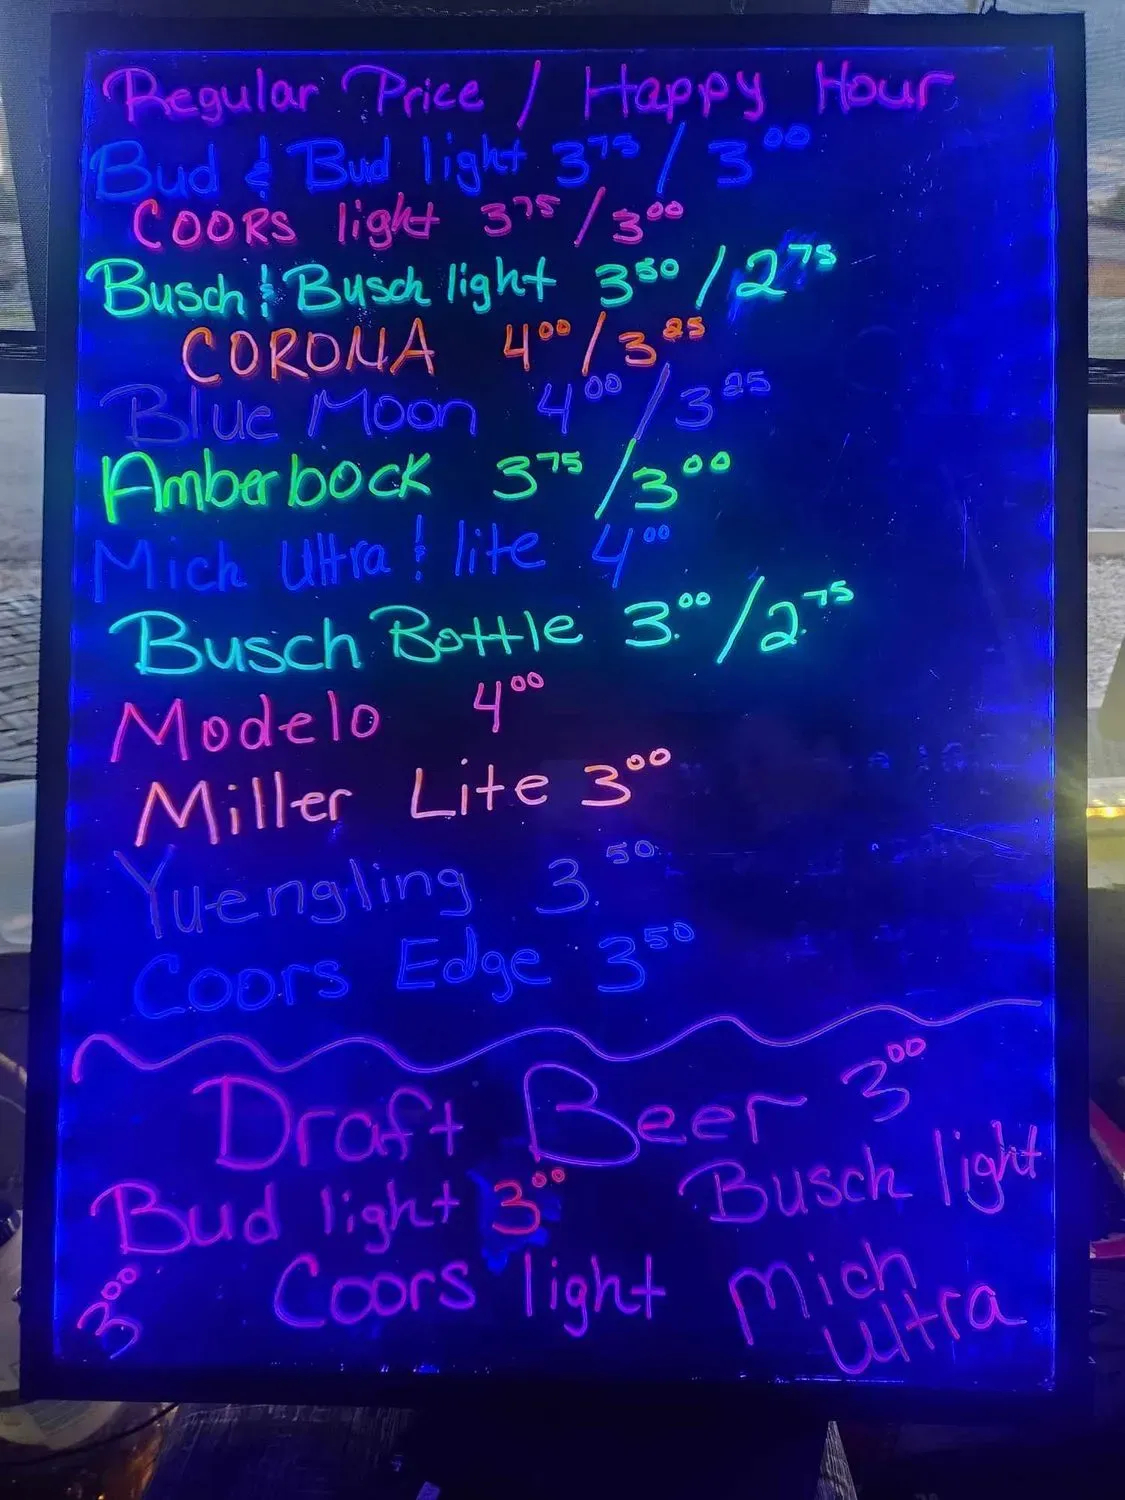 Regular Price / Happy Hour
Bud & Bud light 3 75 / 3 00
COORS light 3 75 / 3 00
Busch & Busch light 3 50 / 2 75
CORONA 4 00 / 3 25
Blue Moon 4 00 / 3 25
Amberbock 3 75 / 3 00
Mich Ultra & lite 4 00
Busch Bottle 3. 00 / 2. 75
Modelo 4 00
Miller Lite 3 00
Yuengling 3. 50
Coors Edge 3 50
Draft Beer 3 00
Bud light 3 00 Busch light
3 00 Coors light Mich Ultra